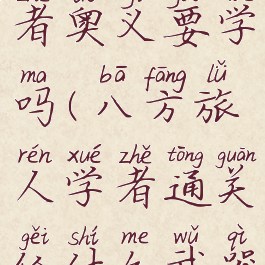 者奥义要学
ma bā fāng lǚ
吗(八方旅
rén xué zhě tōng guān
人学者通关
gěi shí me wǔ qì
给什么武器